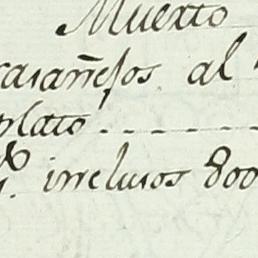 Muerto
casañejos. al
plato - - - - - -
inclusos 800